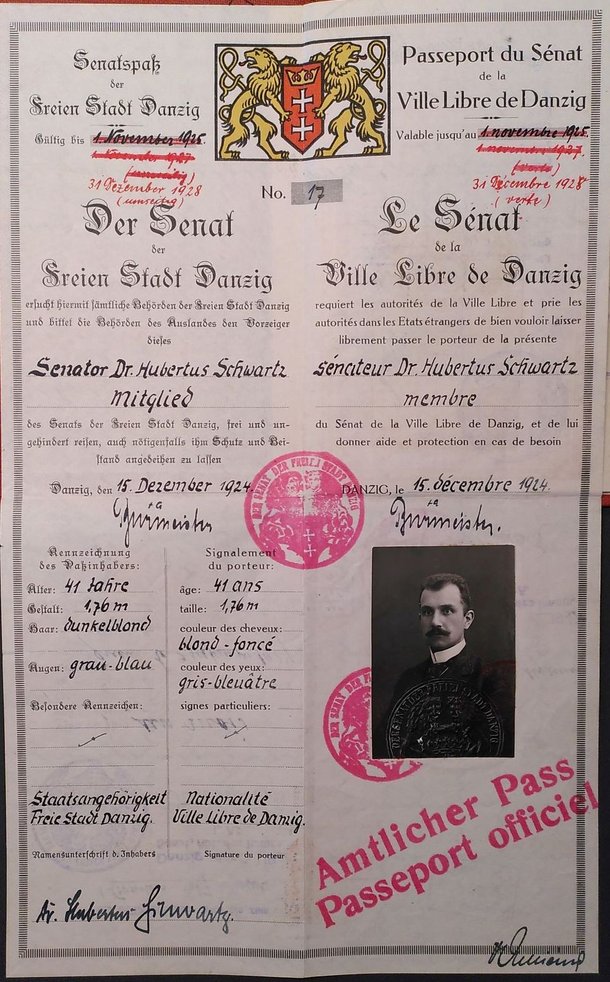 Senatspaß
der
Freien Stadt Danzig
Gültig bis 1. November 1925.
1. November 1927
(umseitig)
31 Dezember 1928
(umseitig)
Passeport du Sénat
de la
Ville Libre de Danzig
Valable jusqu'au 1 novembre 1925.
1 novembre 1927.
(verte)
31 Décembre 1928
(verte)
No. 17
Der Senat
der
Freien Stadt Danzig
ersucht hiermit sämtliche Behörden der Freien Stadt Danzig
und bittet die Behörden des Auslandes den Vorzeiger
dieses
Senator Dr. Hubertus Schwartz
Mitglied
des Senats der Freien Stadt Danzig, frei und un-
gehindert reisen, auch nötigenfalls ihm Schutz und Bei-
stand angedeihen zu lassen
Danzig, den 15. Dezember 1924.
Le Sénat
de la
Ville Libre de Danzig
requiert les autorités de la Ville Libre et prie les
autorités dans les Etats étrangers de bien vouloir laisser
librement passer le porteur de la présente
sénateur Dr. Hubertus Schwartz
membre
du Sénat de la Ville Libre de Danzig, et de lui
donner aide et protection en cas de besoin
DANZIG, le 15. décembre 1924.
DER SENAT DER FREIEN STADT DANZIG
Kennzeichnung
des Paßinhabers:
Alter: 41 Jahre
Gestalt: 1,76 m
Haar: dunkelblond
Augen: grau-blau
Besondere Kennzeichen:
Signalement
du porteur:
âge: 41 ans
taille: 1,76 m
couleur des cheveux:
blond-foncé
couleur des yeux:
gris-bleuâtre
signes particuliers:
Staatsangehörigkeit
Freie Stadt Danzig.
Nationalité
Ville Libre de Danzig.
Namensunterschrift d. Inhabers
Signature du porteur
Dr. Hubertus Schwartz.
DER SENAT DER FREIEN STADT DANZIG
Amtlicher Pass
Passeport officiel